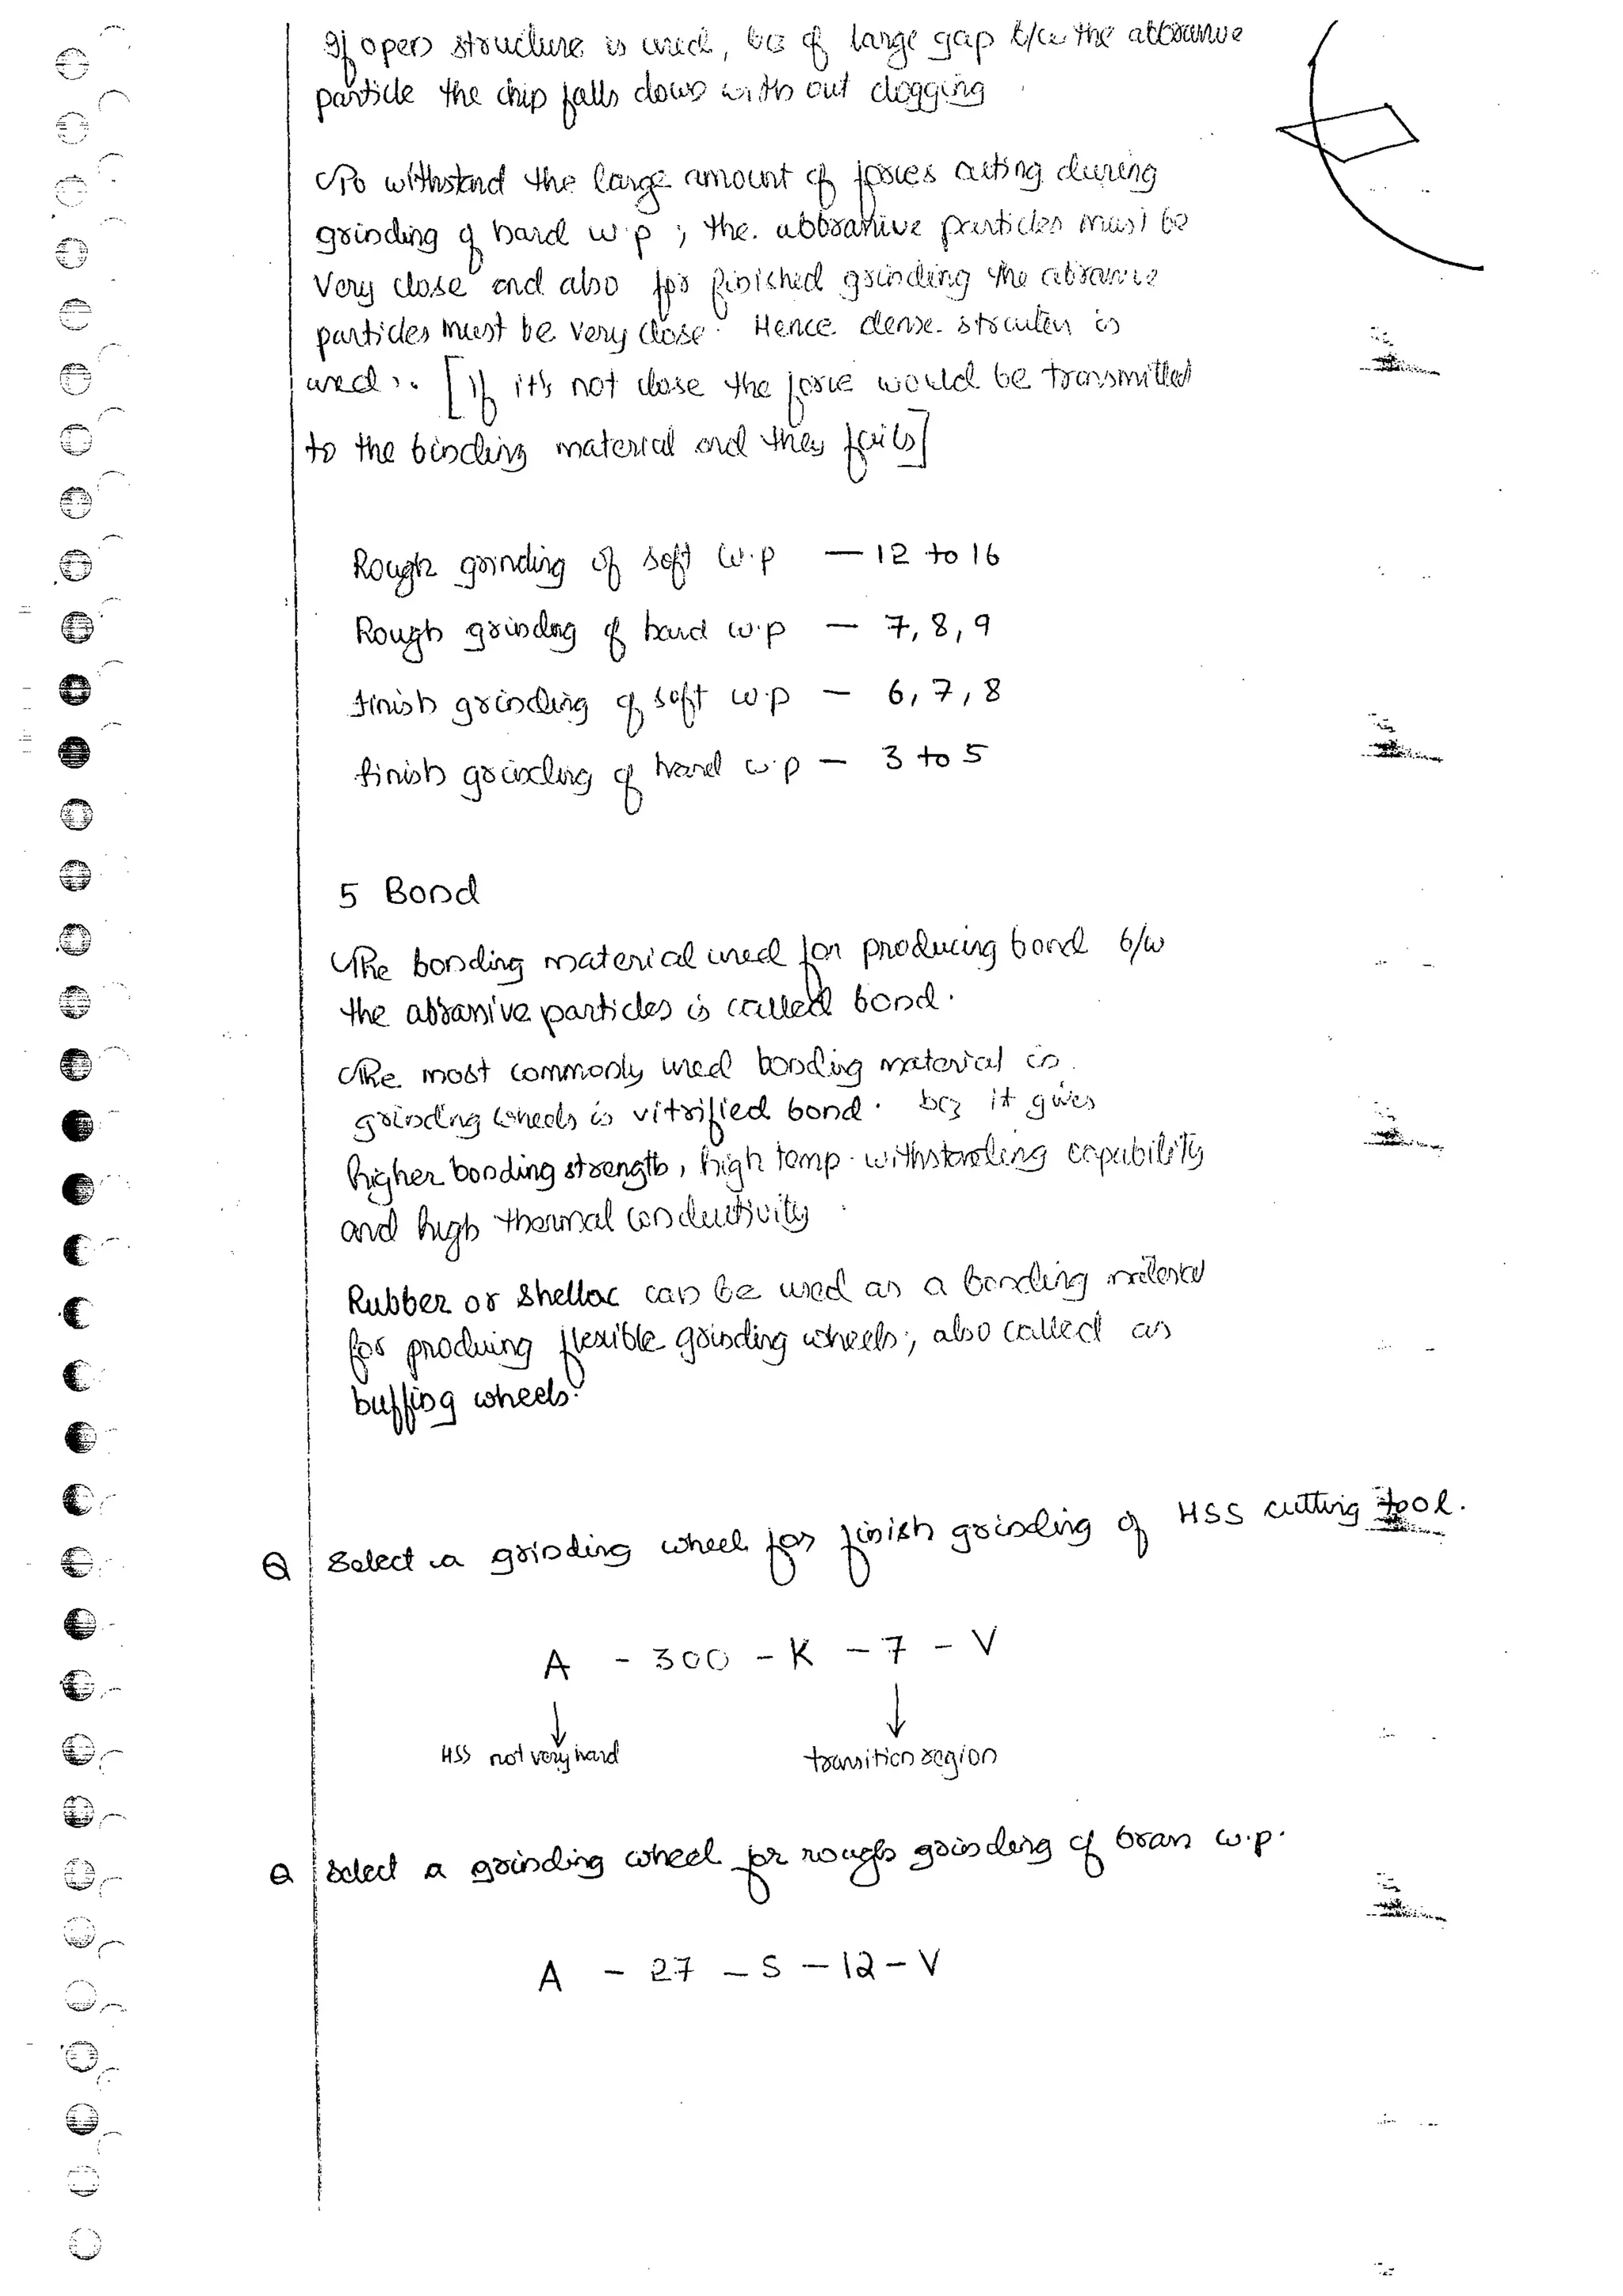 If open structure is used, bcz of large gap b/w the abbrasive
particle the chip falls down with out clogging
To withstand the large amount of forces acting during
grinding of hard w.p ; the abbrasive particles must be
very close and also for finished grinding the abrasive
particles must be very close. Hence dense
used. [if it's not close the force would be transmitted
to the binding material and they fails]
Rough grinding of soft w.p — 12 to 16
Rough grinding of hard w.p — 7, 8, 9
finish grinding of soft w.p — 6, 7, 8
finish grinding of hard w.p — 3 to 5
5 Bond
The bonding material used for producing bond b/w
the abrasive particles is called bond.
The most commonly used bonding material in
grinding wheels is vitrified bond. bcz it gives
higher bonding strength, high temp. withstanding capability
and high thermal conductivity
Rubber or shellac can be used as a bonding material
for produing flexible grinding wheels; also called as
buffing wheels.
Q Select a grinding wheel for finish grinding of HSS cutting tool.
A - 300 - K - 7 - V
HSS not very hard transition region
Q Select a grinding wheel for rough grinding of brass w.p.
A - 27 - S - 12 - V